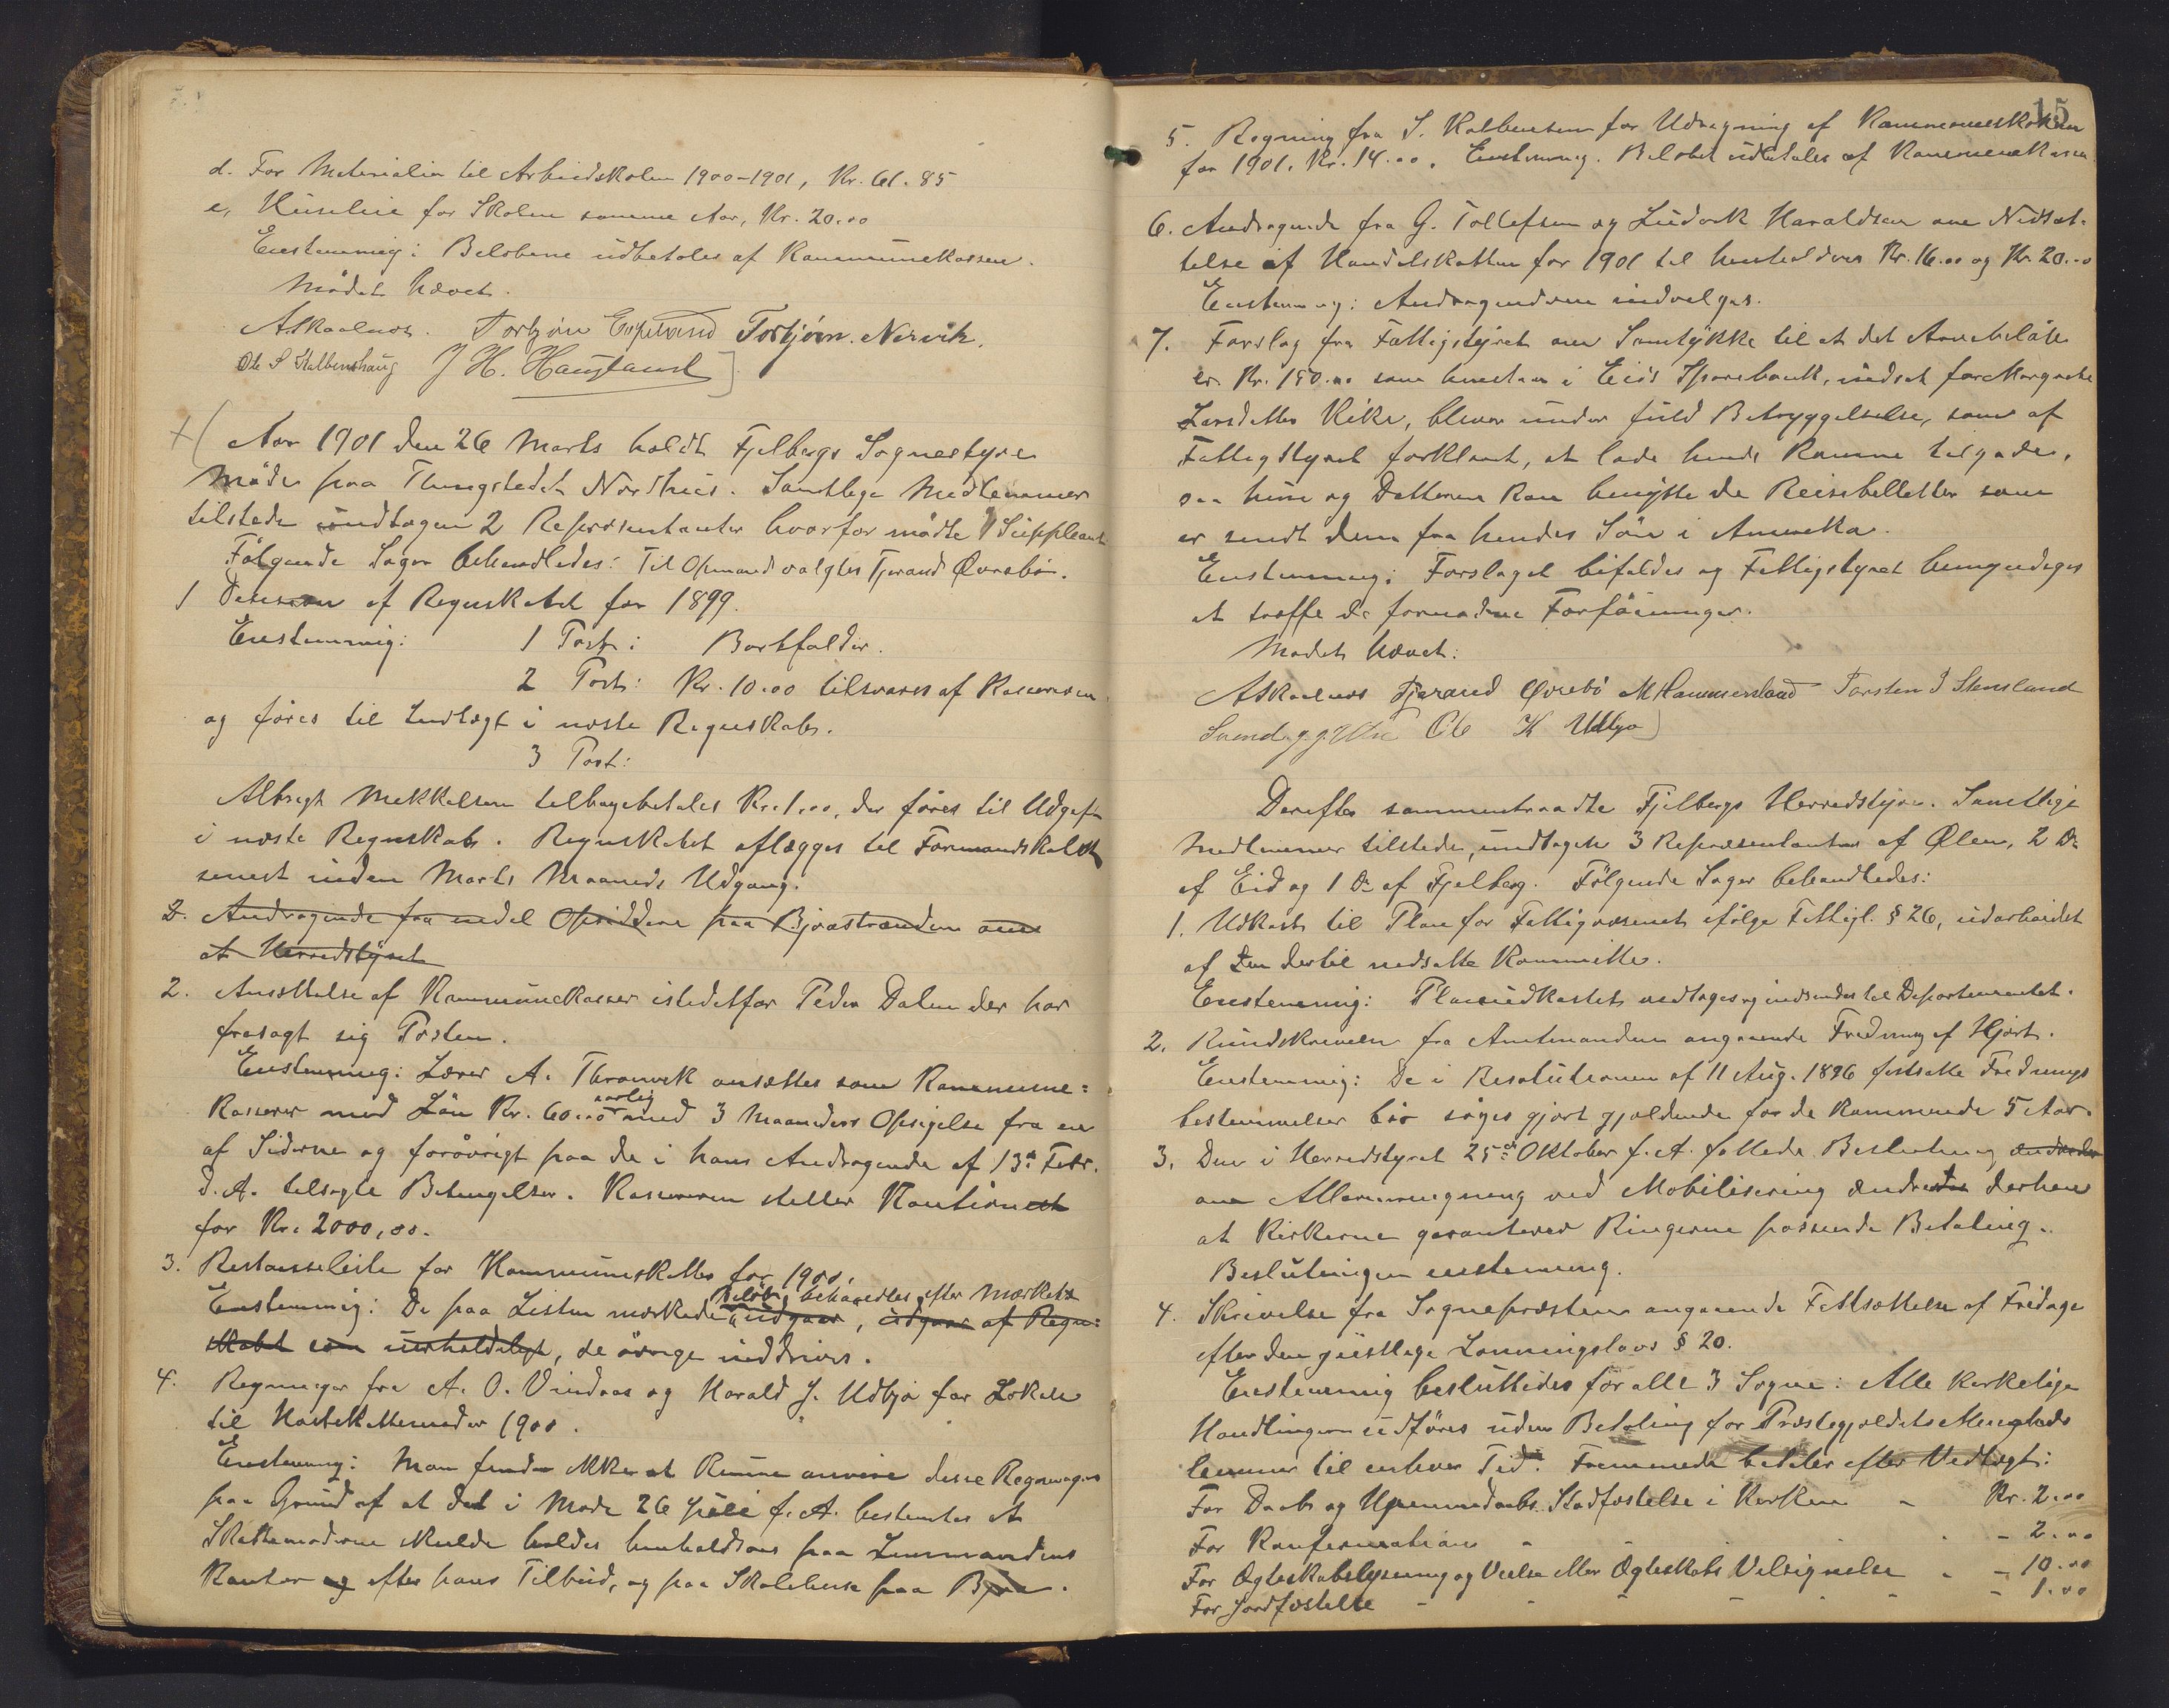 d. For Materialier til Arbeidskolen 1900-1901, Kr. 61.85
e, Husleie for Skolen samme Aar, Kr. 20.00
Enstemmig: Belöbene udbetales af Kommunekassen.
Mödet hævet.
Askaalnos. Torbjörn Espeland Torbjörn. Nervik.
Ole S Kalbenshaug J H. Haugland
Aar 1901 den 26 Marts holdt Fjelbergs Sognestyre
Möde paa Thingstedet Nordhus. Samtlige Medlemmer
tilstede undtagen 2 Repræsentanter hvorfor mödte 1 Suppleant
Fölgende Sager behandledes: Til Opmand valgtes Tjerand Øvrebö.
1 Decision af Regnskabet for 1899.
Enstemmig: 1 Post: Bortfalder.
2 Post: Kr. 10.00 tilsvares af Kassereren
og föres til Indtægt i næste Regnskab.
3 Post:
Albregt Mekkelsen tilbagebetales Kr. 1.00, der föres til Udgift
i næste Regnskab. Regnskabet aflægges til Formandskabet
senest inden Marts Maaneds Udgang.
2. Andragende fra endel Opsiddere paa Bjoastranden om
at Herredstyret
2. Ansættelse af Kommunekasser istedetfor Peder Dalen der har
frasagt sig Posten.
Enstemmig: Lærer A. Thronvik ansættes som Kommune=
kasserer med Lön Kr. 60.00 aarlig med 3 Maaneders Opsigelse fra en
af Siderne og forövrigt paa de i hans Andragende af 13de Febr.
d. A. tilsagte Betingelser. Kassereren stiller Kaution
for Kr. 2000,00.
3. Restanseliste for Kommuneskatter for 1900.
Enstemmig: De paa Listen mærkede Belöb behandles efter Mærket udgaar, udgaar af Regn=
skabet som uerholdeligt, de övrige inddrives.
4. Regninger fra A. O. Vindnes og Harald J. Udbjo for Lokale
til 1900.
Enstemmig: Man finder ikke at kunne anvise disse Regninger
paa Grund af at det i Möde 26 Juli f. A. bestemtes at
Skattemöderne skulde holdes henholdsvis paa Lensmandens
Kontor og efter hans Tilbud, og paa Skolehuse paa Bjoa.
15
5. Regning fra S. Kalbensen for Udregning af Kommuneskatten
for 1901. Kr. 14.00. Enstemmig. Belöbet udbetales af Kommunekassen
6. Andragende fra G. Tollefsen og Ludvik Haraldsen om Nedsæt-
telse af Handelskatten for 1901 til henholdsvis Kr. 16.00 og Kr. 20.00
Enstemmig: Andragenderne indvilges.
7. Forslag fra Fattigstyret om Samtykke til at det Arvebelöb
er Kr. 150.00 som henstaar i Eids Sparebank, indsat for Margrete
Larsdatter Kike, bliver under fuld Betryggelse, som af
Fattigstyret forklaret, at lade hende komme tilgode,
saa hun og Datteren kan benytte de Reisebilletter som
er sendt dem fra hendes Sön i Amerika.
Enstemmig: Forslaget bifaldes og Fattigstyret bemyndiges
at træffe de fornödne Forföininger.
Mödet hævet:
Askaalnos Tjerand Øvrebö M Hammersland Torsten J Stensland
Svend Ole K Udbjo
Derefter sammentraadte Fjelbergs Herredstyre. Samtlige
Medlemmer tilstede, undtagen 3 Repræsentanter af Ølen, 2 Do
af Eid og 1 Do af Fjelberg. Fölgende Sager behandledes:
1. Udkast til Plan for Fattigvæsenet ifölge Fattigl. § 26, udarbeidet
af den dertil nedsatte Kommitte.
Enstemmig: Planudkastet vedtages og indsendes til Departementet.
2. Rundskrivelse fra Amtmanden angaaende Fredning af Hjort.
Enstemmig: De i Resolutionen af 11 Aug. 1896 fastsatte Frednings
bestemmelser bör söges gjort gjældende for de kommende 5 Aar.
3. Den i Herredstyret 25de Oktober f. A. fattede Beslutning ændredes
om Allarmringning ved Mobilisering ændredes derhen
at Kirkerne garanterer Ringerne passende Betaling.
Beslutningen enstemmig.
4. Skrivelse fra Sognepræsten angaaende Fastsættelse af Fridage
efter den geistlige Lönningslovs § 20.
Enstemmig besluttedes for alle 3 Sogne: Alle kirkelige
Handlinger udföres uden Betaling for Præstegjældets Menigheds
lemmer til enhver Tid. Fremmede betaler efter Vedtægt:
For Daab og Hjemmedaabs Stadfæstelse i Kirken - Kr. 2.00
For Konfirmation - - - 2.00
For Ægteskabslysning og Vielse eller Ægteskabs Velsignelse - - 10.00
For Jordfæstelse - - - - - 1.00